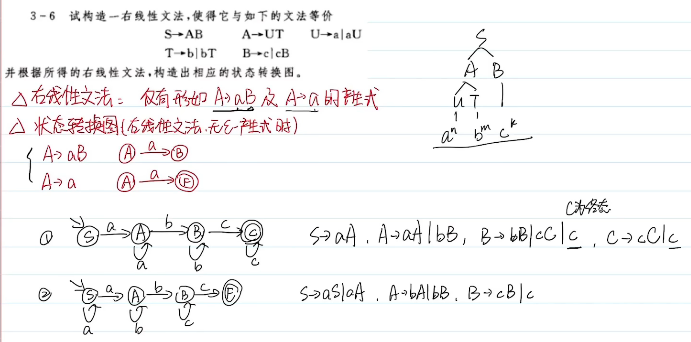 3-6 试构造一右线性文法,使得它与如下的文法等价
S→AB A→UT U→a|aU
T→b|bT B→c|cB
并根据所得的右线性文法,构造出相应的状态转换图。
△ 右线性文法: 仅有形如 A→aB 及 A→a 的产生式
△ 状态转换图(右线性文法,无ε-产生式时)
A→aB A a B
A→a A a F
S
A B
U T
aⁿ bᵐ cᵏ
C为终态
① S a A b B c C S→aA, A→aA|bB, B→bB|cC|c, C→cC|c
a b c
② S a A b B c F S→aS|aA, A→bA|bB, B→cB|c
a b c